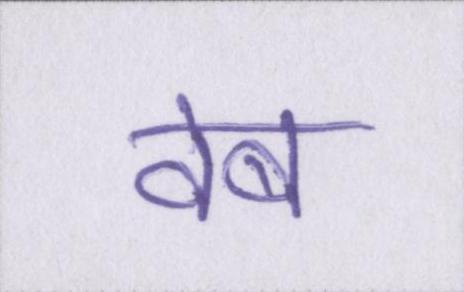 वेब